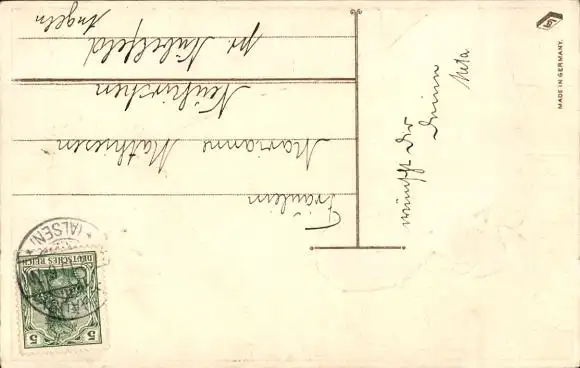 Fräulein
Marianne Mathiesen
Neukirchen
pr. Nübelfeld
Angeln
wünscht Dir
Deine
Meta
DEUTSCHES REICH
5 5
(ALSEN)
MADE IN GERMANY.